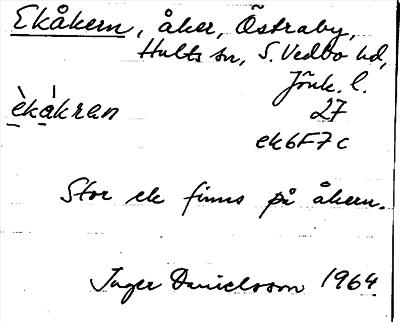 Ekåkern, åker, Östraby,
Hults sn, S. Vedbo hd,
Jönk. l.
èkákran 27
ek6F7c
Stor ek finns på åkern.
Inger Danielsson 1964